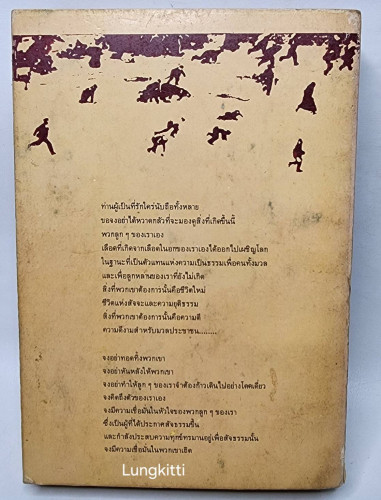 ท่านผู้เป็นที่รักใคร่นับถือทั้งหลาย
ขอจงอย่าได้หวาดกลัวที่จะมองดูสิ่งที่เกิดขึ้นนี้
พวกลูก ๆ ของเราเอง
เลือดที่เกิดจากเลือดในอกของเราเองได้ออกไปเผชิญโลก
ในฐานะที่เป็นตัวแทนแห่งความเป็นธรรมเพื่อคนทั้งมวล
และเพื่อลูกหลานของเราที่ยังไม่เกิด
สิ่งที่พวกเขาต้องการนั้นคือชีวิตใหม่
ชีวิตแห่งสัจจะและความยุติธรรม
สิ่งที่พวกเขาต้องการนั้นคือความดี
ความดีงามสำหรับมวลประชาชน........
จงอย่าทอดทิ้งพวกเขา
จงอย่าหันหลังให้พวกเขา
จงอย่าทำให้ลูก ๆ ของเราจำต้องก้าวเดินไปอย่างโดดเดี่ยว
จงคิดถึงตัวของเราเอง
จงมีความเชื่อมั่นในหัวใจของพวกลูก ๆ ของเรา
ซึ่งเป็นผู้ที่ได้ประกาศสัจธรรมขึ้น
และกำลังประสบความทุกข์ทรมานอยู่เพื่อสัจธรรมนั้น
จงมีความเชื่อมั่นในพวกเขาเถิด
Lungkitti